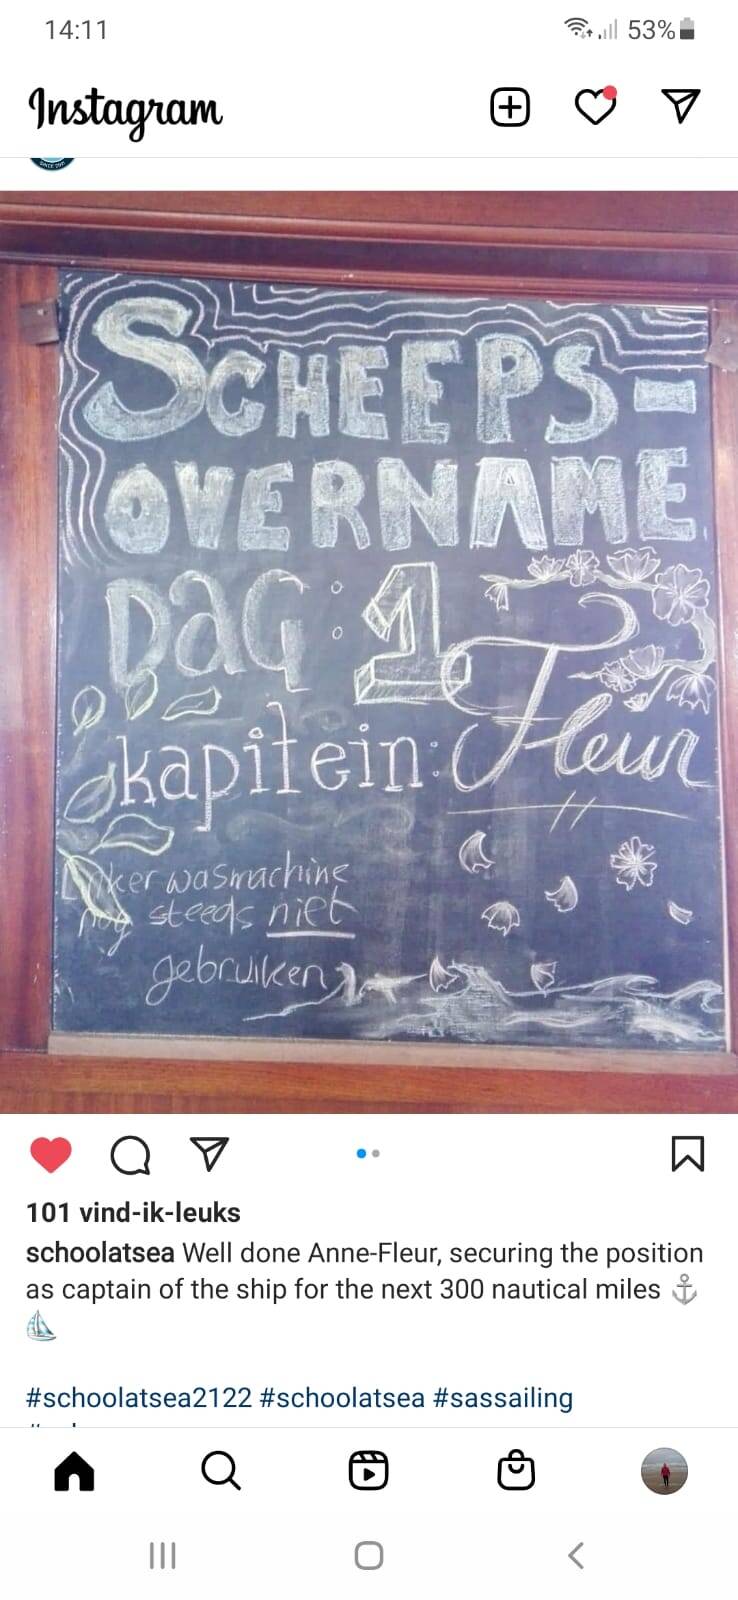 14:11
53%
Instagram
SCHEEPS-
OVERNAME
DAG:1
kapitein: Fleur
wasmachine
nog steeds niet
gebruiken
101 vind-ik-leuks
schoolatsea Well done Anne-Fleur, securing the position
as captain of the ship for the next 300 nautical miles ⚓
⛵
#schoolatsea2122 #schoolatsea #sassailing